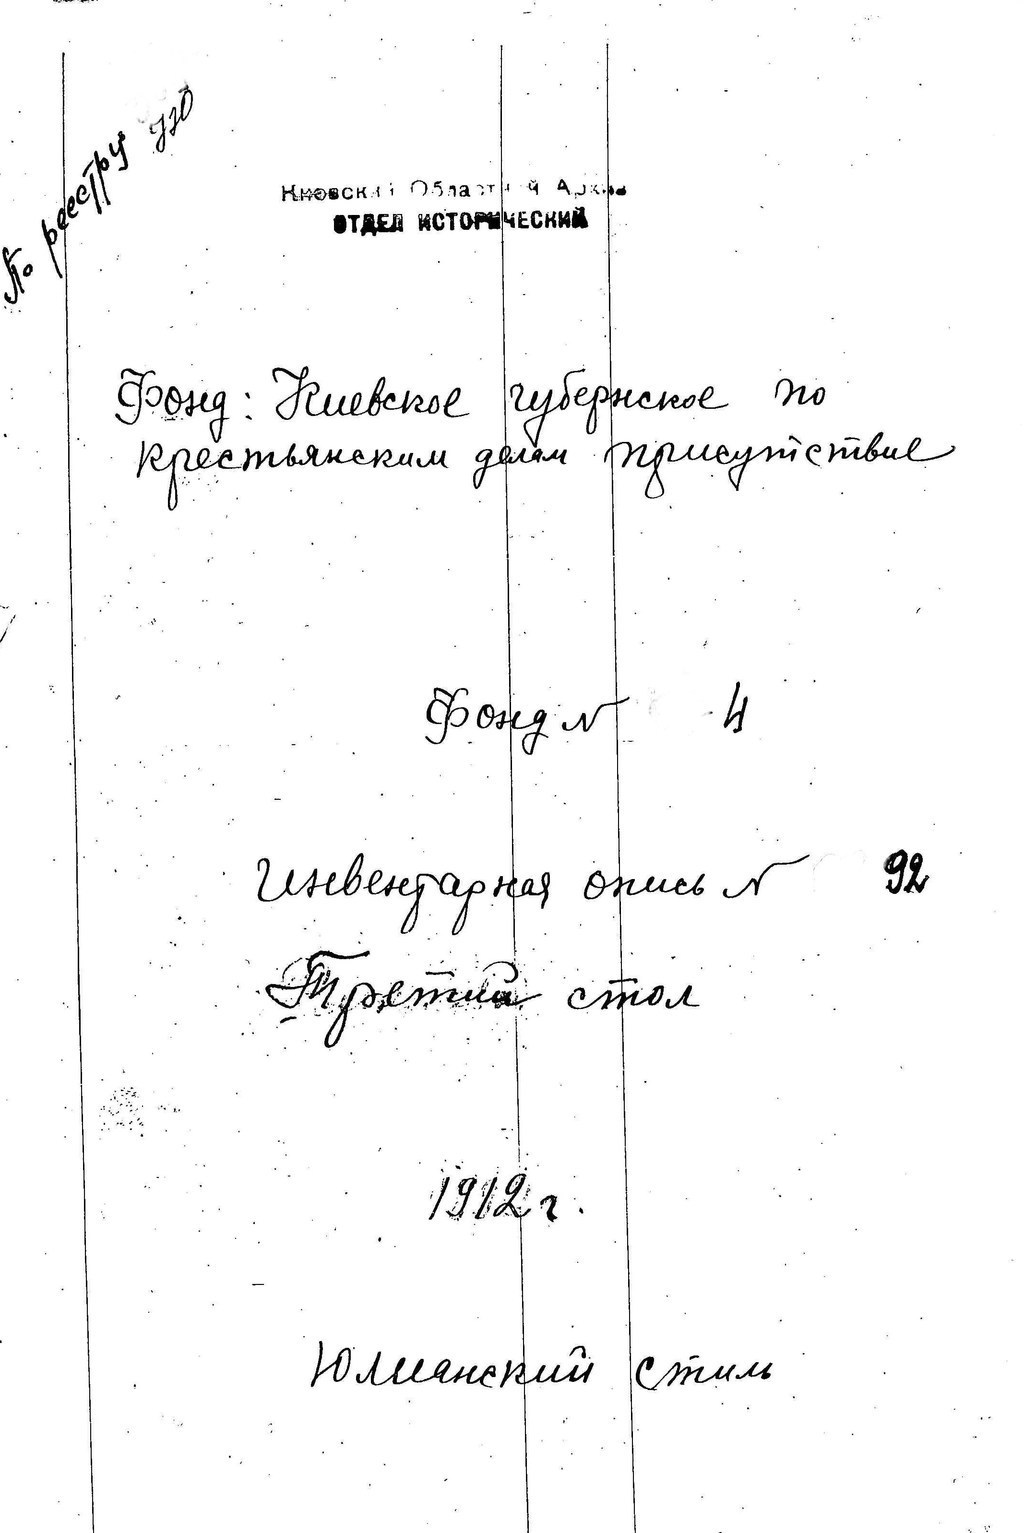 По реестру 770
Киевский Областной Архив
ОТДЕЛ ИСТОРИЧЕСКИЙ
Фонд: Киевское губернское по
крестьянским делам присутствие
Фонд № 4
Инвентарная опись № 92
Третий стол
1912 г.
Юлианский стиль